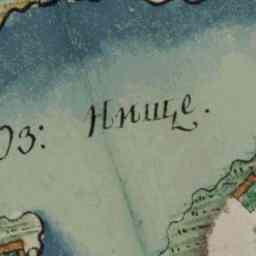 Оз: Нище.